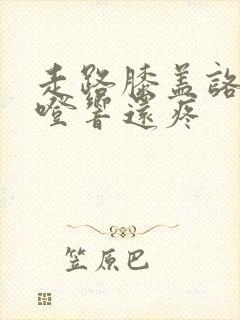 走路膝盖咯
噔響還疼
笠原巴